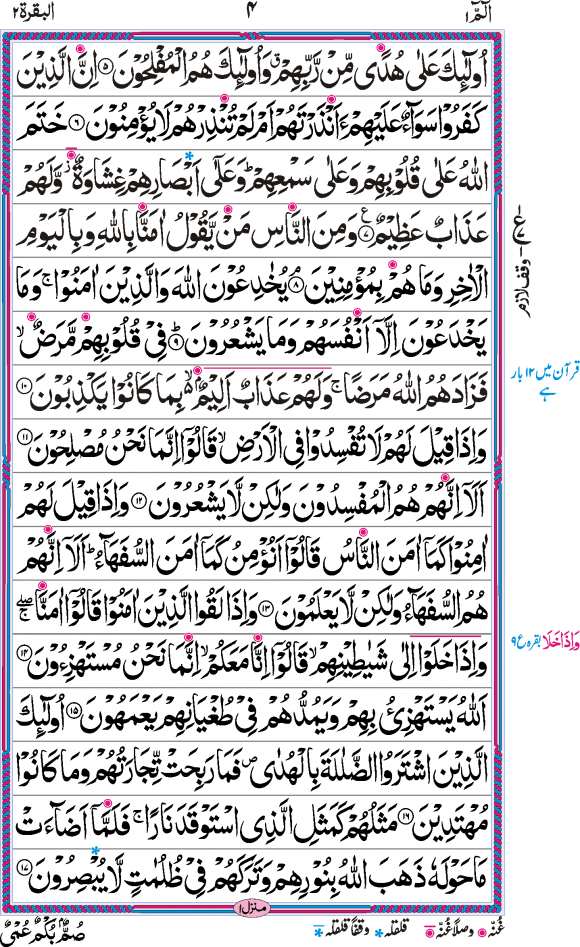 الٓمّٓ ۱
۴
البقرة ۲
اُولٰٓئِكَ عَلٰى هُدًى مِّنْ رَّبِّهِمْ ۗ وَاُولٰٓئِكَ هُمُ الْمُفْلِحُوْنَ ۝۵ اِنَّ الَّذِيْنَ
كَفَرُوْا سَوَآءٌ عَلَيْهِمْ ءَاَنْذَرْتَهُمْ اَمْ لَمْ تُنْذِرْهُمْ لَا يُؤْمِنُوْنَ ۝۶ خَتَمَ
اللّٰهُ عَلٰى قُلُوْبِهِمْ وَعَلٰى سَمْعِهِمْ ؕ وَعَلٰٓى اَبْصَارِهِمْ غِشَاوَةٌ ؗ وَّلَهُمْ
عَذَابٌ عَظِيْمٌ ۝۷ ع وَمِنَ النَّاسِ مَنْ يَّقُوْلُ اٰمَنَّا بِاللّٰهِ وَبِالْيَوْمِ
الْاٰخِرِ وَمَا هُمْ بِمُؤْمِنِيْنَ ۝۸ يُخٰدِعُوْنَ اللّٰهَ وَالَّذِيْنَ اٰمَنُوْا ۚ وَمَا
يَخْدَعُوْنَ اِلَّاۤ اَنْفُسَهُمْ وَمَا يَشْعُرُوْنَ ۝۹ؕ فِيْ قُلُوْبِهِمْ مَّرَضٌ ۙ
فَزَادَهُمُ اللّٰهُ مَرَضًا ۚ وَلَهُمْ عَذَابٌ اَلِيْمٌۢ ۙ بِمَا كَانُوْا يَكْذِبُوْنَ ۝۱۰
وَاِذَا قِيْلَ لَهُمْ لَا تُفْسِدُوْا فِي الْاَرْضِ ۙ قَالُوْۤا اِنَّمَا نَحْنُ مُصْلِحُوْنَ ۝۱۱
اَلَاۤ اِنَّهُمْ هُمُ الْمُفْسِدُوْنَ وَلٰكِنْ لَّا يَشْعُرُوْنَ ۝۱۲ وَاِذَا قِيْلَ لَهُمْ
اٰمِنُوْا كَمَاۤ اٰمَنَ النَّاسُ قَالُوْۤا اَنُؤْمِنُ كَمَاۤ اٰمَنَ السُّفَهَآءُ ؕ اَلَاۤ اِنَّهُمْ
هُمُ السُّفَهَآءُ وَلٰكِنْ لَّا يَعْلَمُوْنَ ۝۱۳ وَاِذَا لَقُوا الَّذِيْنَ اٰمَنُوْا قَالُوْۤا اٰمَنَّا ۖۚ
وَاِذَا خَلَوْا اِلٰى شَيٰطِيْنِهِمْ ۙ قَالُوْۤا اِنَّا مَعَكُمْ ۙ اِنَّمَا نَحْنُ مُسْتَهْزِءُوْنَ ۝۱۴
اَللّٰهُ يَسْتَهْزِئُ بِهِمْ وَيَمُدُّهُمْ فِيْ طُغْيَانِهِمْ يَعْمَهُوْنَ ۝۱۵ اُولٰٓئِكَ
الَّذِيْنَ اشْتَرَوُا الضَّلٰلَةَ بِالْهُدٰى ۪ فَمَا رَبِحَتْ تِّجَارَتُهُمْ وَمَا كَانُوْا
مُهْتَدِيْنَ ۝۱۶ مَثَلُهُمْ كَمَثَلِ الَّذِي اسْتَوْقَدَ نَارًا ۚ فَلَمَّاۤ اَضَآءَتْ
مَا حَوْلَهٗ ذَهَبَ اللّٰهُ بِنُوْرِهِمْ وَتَرَكَهُمْ فِيْ ظُلُمٰتٍ لَّا يُبْصِرُوْنَ ۝۱۷
وقف لازم
قرآن میں ۱۲ بار
ہے
وَاِذَا خَلَا بقرہ ع ۹
منزل ۱
غُنّہ • وصلاً غُنّہ • قلقلہ * وقفًا قلقلہ *
صُمٌّۢ بُكْمٌ عُمْيٌ